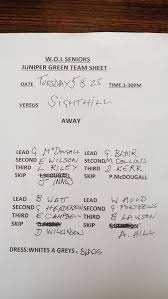 W.O.I. SENIORS
JUNIPER GREEN TEAM SHEET
DATE TUESDAY 5 8 25 TIME:1-30PM
VERSUS SIGHTHILL
AWAY
LEAD G McDOUGALL LEAD G BLAIR
SECOND E WILSON SECOND M COLLINS
THIRD L RILEY THIRD D KERR
SKIP J INNES SKIP P.McDOUGALL
LEAD B WATT LEAD W AULD
SECOND G HENDERSON SECOND G
THIRD E CAMPBELL THIRD B LAWSON
SKIP D WILKINSON SKIP A. HILL
DRESS:WHITES & GREYS